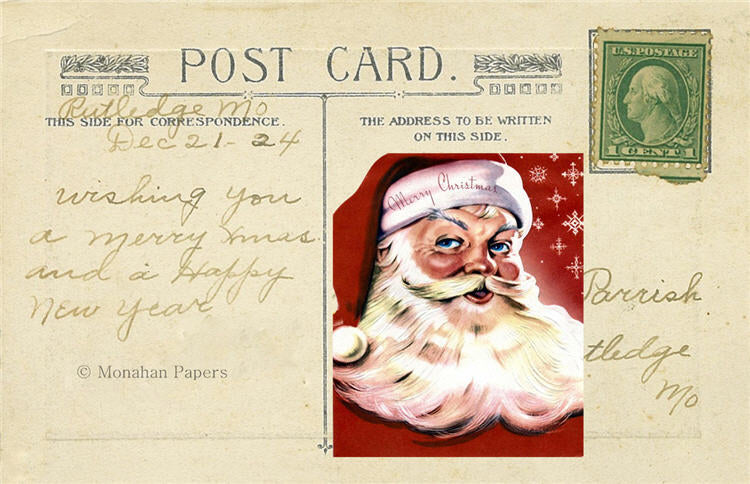 POST CARD.
U.S. POSTAGE
1 CENT
Rutledge Mo
THIS SIDE FOR CORRESPONDENCE.
Dec 21-24
THE ADDRESS TO BE WRITTEN
ON THIS SIDE.
wishing you
a merry Xmas
and a Happy
New Year
Merry Christmas
Parrish
tledge
Mo
© Monahan Papers